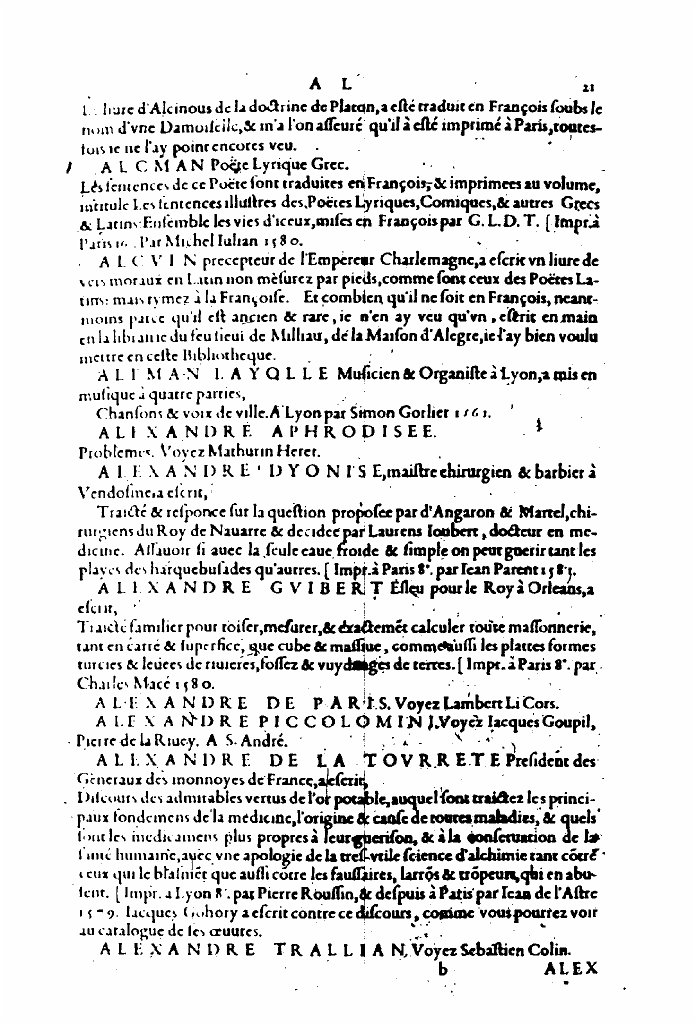 A L 21
Le liure d'Alcinous de la doctrine de Platon, a esté traduit en François soubs le
nom d'vne Damoiselle, & m'a l'on asseuré qu'il à esté imprimé à Paris, toutes-
fois ie ne l'ay point encores veu.
ALCMAN Poëte Lyrique Grec.
Les sentences de ce Poëte sont traduites en François, & imprimees au volume,
intitule Les sentences illustres des Poëtes Lyriques, Comiques, & autres Grecs
& Latins. Ensemble les vies d'iceux, mises en François par G. L. D. T. [Impr. à
Paris 16. Par Michel Iulian 1580.
ALCVIN precepteur de l'Empereur Charlemagne, a escrit vn liure de
vers moraux en Latin non mesurez par pieds, comme sont ceux des Poëtes La-
tins: mais rymez à la Françoise. Et combien qu'il ne soit en François, neant-
moins parce qu'il est ancien & rare, ie n'en ay veu qu'vn, escrit en main
en la librairie du feu sieui de Milliau, de la Maison d'Alegre, ie l'ay bien voulu
mettre en ceste Bibliotheque.
ALEMAN LAYOLLE Musicien & Organiste à Lyon, a mis en
musique à quatre parties,
Chansons & voix de ville. A Lyon par Simon Gorlier 1561.
ALEXANDRE APHRODISEE.
Problemes. Voyez Mathurin Herer.
ALEXANDRE DYONISE, maistre chirurgien & barbier à
Vendosme, a escrit,
Traicté & response sur la question proposee par d'Angaron & Martel, chi-
rurgiens du Roy de Nauarre & decidee par Laurens Ioubert, docteur en me-
dicine. Assauoir si auec la seule eaue froide & simple on peut guerir tant les
playes des harquebusades qu'autres. [Impr. à Paris 8°. par Iean Parent 1583.
ALEXANDRE GVIBERT Esleu pour le Roy à Orleans, a
escrit,
Traicté familier pour toiser, mesurer, & exactemēt calculer toute massonnerie,
tant en carré & superfice, que cube & massiue, comme aussi les plattes formes
turcies & leuees de riuieres, fossez & vuydanges de terres. [Impr. à Paris 8°. par
Charles Macé 1580.
ALEXANDRE DE PARIS. Voyez Lambert Li Cors.
ALEXANDRE PICCOLOMINI. Voyez Iacques Goupil,
Pierre de la Riuey. A S. André.
ALEXANDRE DE LA TOVRRETE President des
Generaux des monnoyes de France, a escrit,
Discours des admirables vertus de l'or potable, auquel sont traictez les princi-
paux fondemens de la medicine, l'origine & cause de toutes maladies, & quels
sont les medicamens plus propres à leur guerison, & à la conseruation de la
santé humaine, auec vne apologie de la tres-vtile science d'alchimie tant cōtre
ceux qui le blasment que aussi cōtre les faussaires, larrōs & trōpeurs, qui en abu-
sent. [Impr. a Lyon 8°. par Pierre Roussin, & despuis à Paris par Iean de l'Astre
1579. Iacques Gohory a escrit contre ce discours, comme vous pourrez voir
au catalogue de ses œuures.
ALEXANDRE TRALLIAN, Voyez Sebastien Colin.
b ALEX